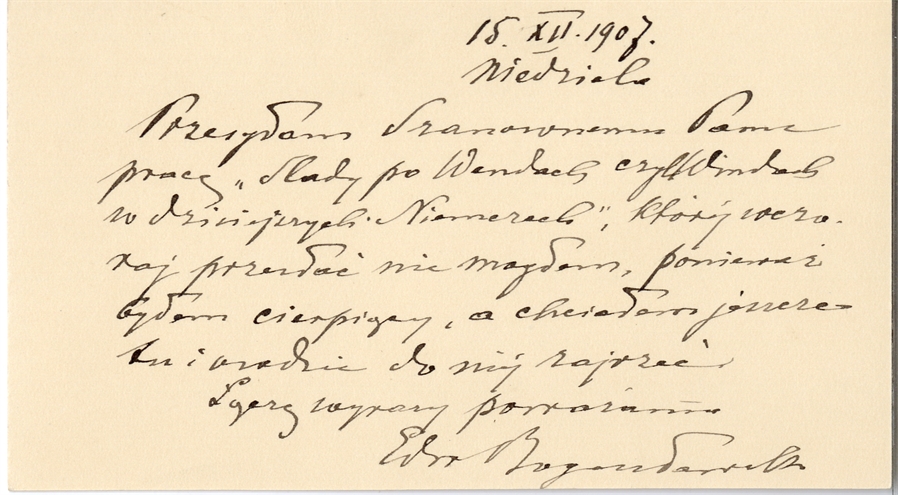 15. XII. 1907.
Niedziela
Przesyłam Szanownemu Panu
pracę „Ślady po Wendach, czyli Windach
w dzisiejszych Niemczech", której wczo-
raj przesłać nie mogłem, ponieważ
byłem cierpiący, a chciałem jeszcze
tu i owdzie do niej zajrzeć.
Łączę wyrazy poważania
Edw Bogusławski